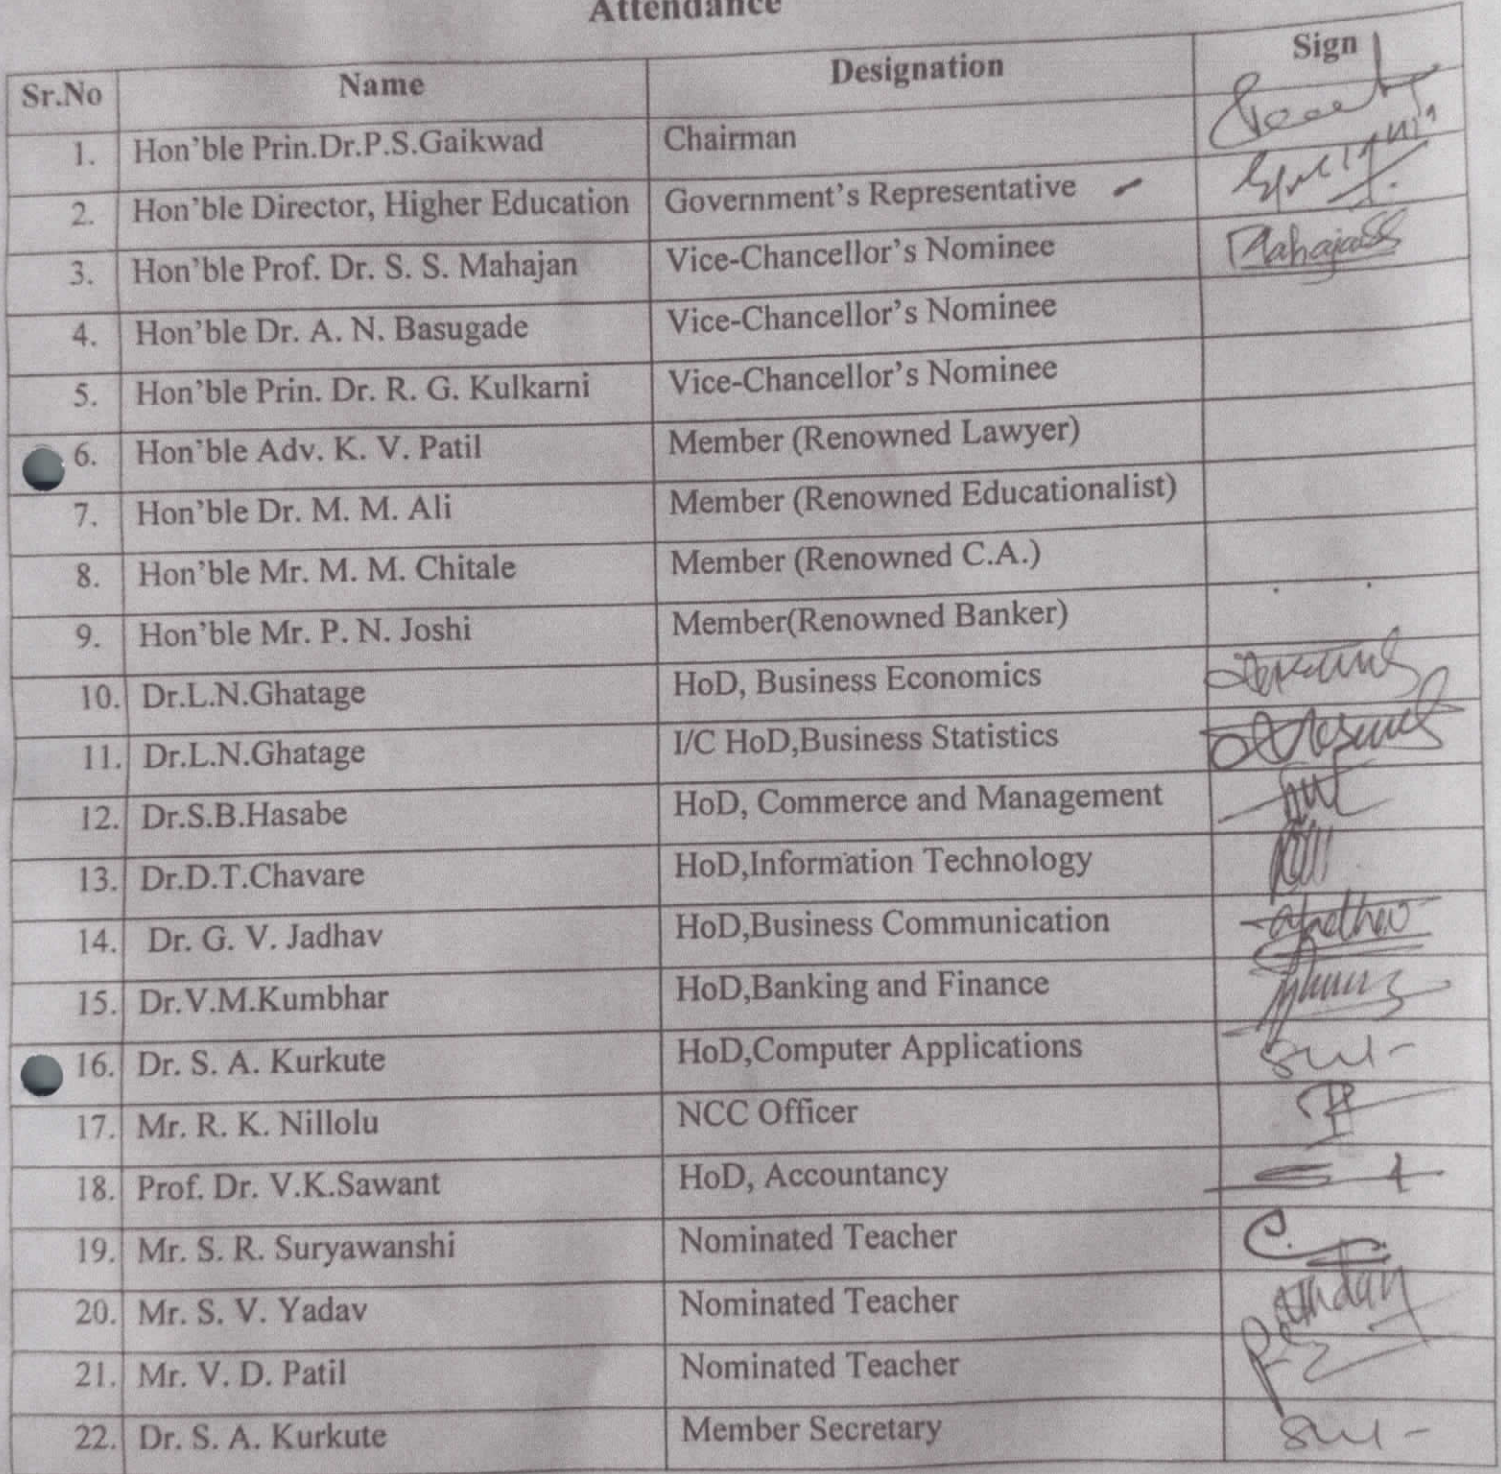 Attendance
Sr.No Name Designation Sign
1. Hon'ble Prin.Dr.P.S.Gaikwad Chairman
2. Hon'ble Director, Higher Education Government's Representative
3. Hon'ble Prof. Dr. S. S. Mahajan Vice-Chancellor's Nominee MahajanSS
4. Hon'ble Dr. A. N. Basugade Vice-Chancellor's Nominee
5. Hon'ble Prin. Dr. R. G. Kulkarni Vice-Chancellor's Nominee
6. Hon'ble Adv. K. V. Patil Member (Renowned Lawyer)
7. Hon'ble Dr. M. M. Ali Member (Renowned Educationalist)
8. Hon'ble Mr. M. M. Chitale Member (Renowned C.A.)
9. Hon'ble Mr. P. N. Joshi Member(Renowned Banker)
10. Dr.L.N.Ghatage HoD, Business Economics
11. Dr.L.N.Ghatage I/C HoD,Business Statistics
12. Dr.S.B.Hasabe HoD, Commerce and Management
13. Dr.D.T.Chavare HoD,Information Technology
14. Dr. G. V. Jadhav HoD,Business Communication
15. Dr.V.M.Kumbhar HoD,Banking and Finance
16. Dr. S. A. Kurkute HoD,Computer Applications
17. Mr. R. K. Nillolu NCC Officer
18. Prof. Dr. V.K.Sawant HoD, Accountancy
19. Mr. S. R. Suryawanshi Nominated Teacher
20. Mr. S. V. Yadav Nominated Teacher
21. Mr. V. D. Patil Nominated Teacher
22. Dr. S. A. Kurkute Member Secretary